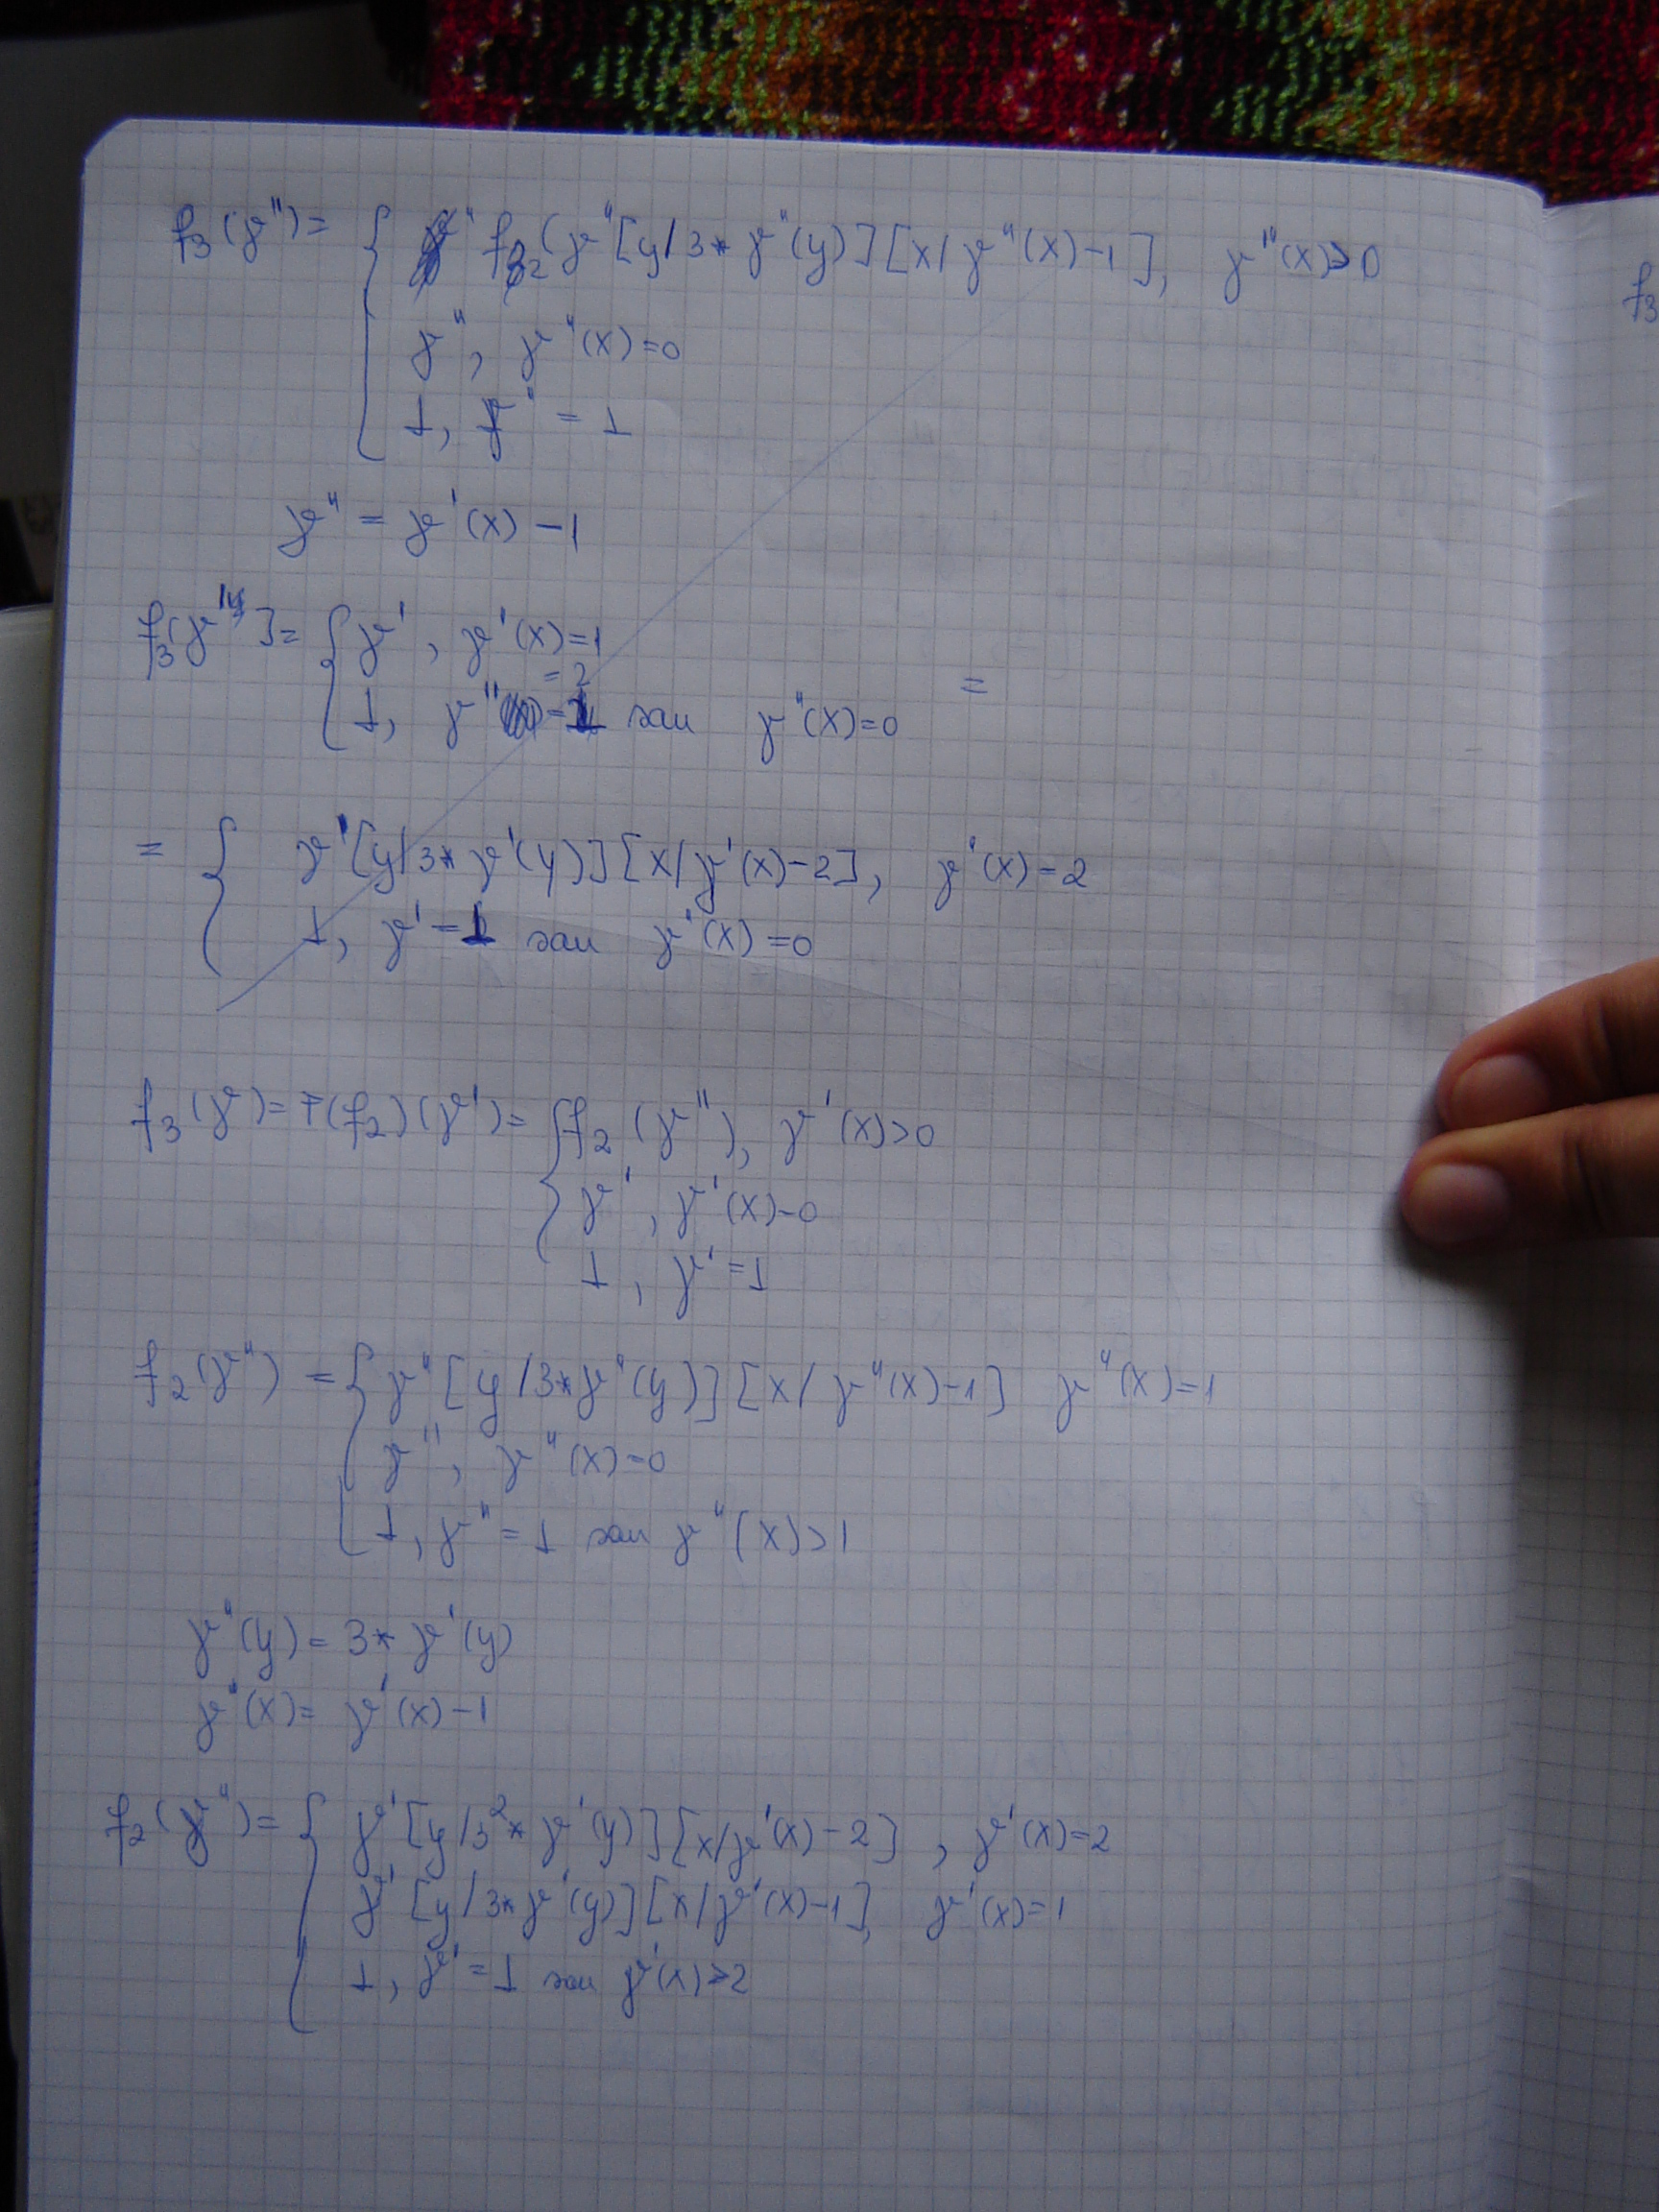 f₃(γ'') = { f₂(γ''[y/3*γ''(y)][x/γ''(x)-1], γ''(x)>0
γ'', γ''(x)=0
⊥, γ'' = ⊥
γ'' = γ'(x) - 1
f₃(γ'')= { γ', γ'(x)=1
=2
⊥, γ'' = ⊥ sau γ''(x)=0 =
= { γ'[y/3*γ'(y)][x/γ'(x)-2], γ'(x)=2
⊥, γ'=⊥ sau γ'(x)=0
f₃(γ)= F(f₂)(γ')= { f₂(γ''), γ'(x)>0
γ', γ'(x)=0
⊥, γ'=⊥
f₂(γ'') = { γ''[y/3*γ''(y)][x/γ''(x)-1] γ''(x)=1
γ'', γ''(x)=0
⊥, γ''=⊥ sau γ''(x)>1
γ''(y)= 3*γ'(y)
γ''(x)= γ'(x)-1
f₂(γ'')= { γ'[y/3²*γ'(y)][x/γ'(x)-2], γ'(x)=2
γ'[y/3*γ'(y)][x/γ'(x)-1] γ'(x)=1
⊥, γ'=⊥ sau γ'(x)>2
f₃